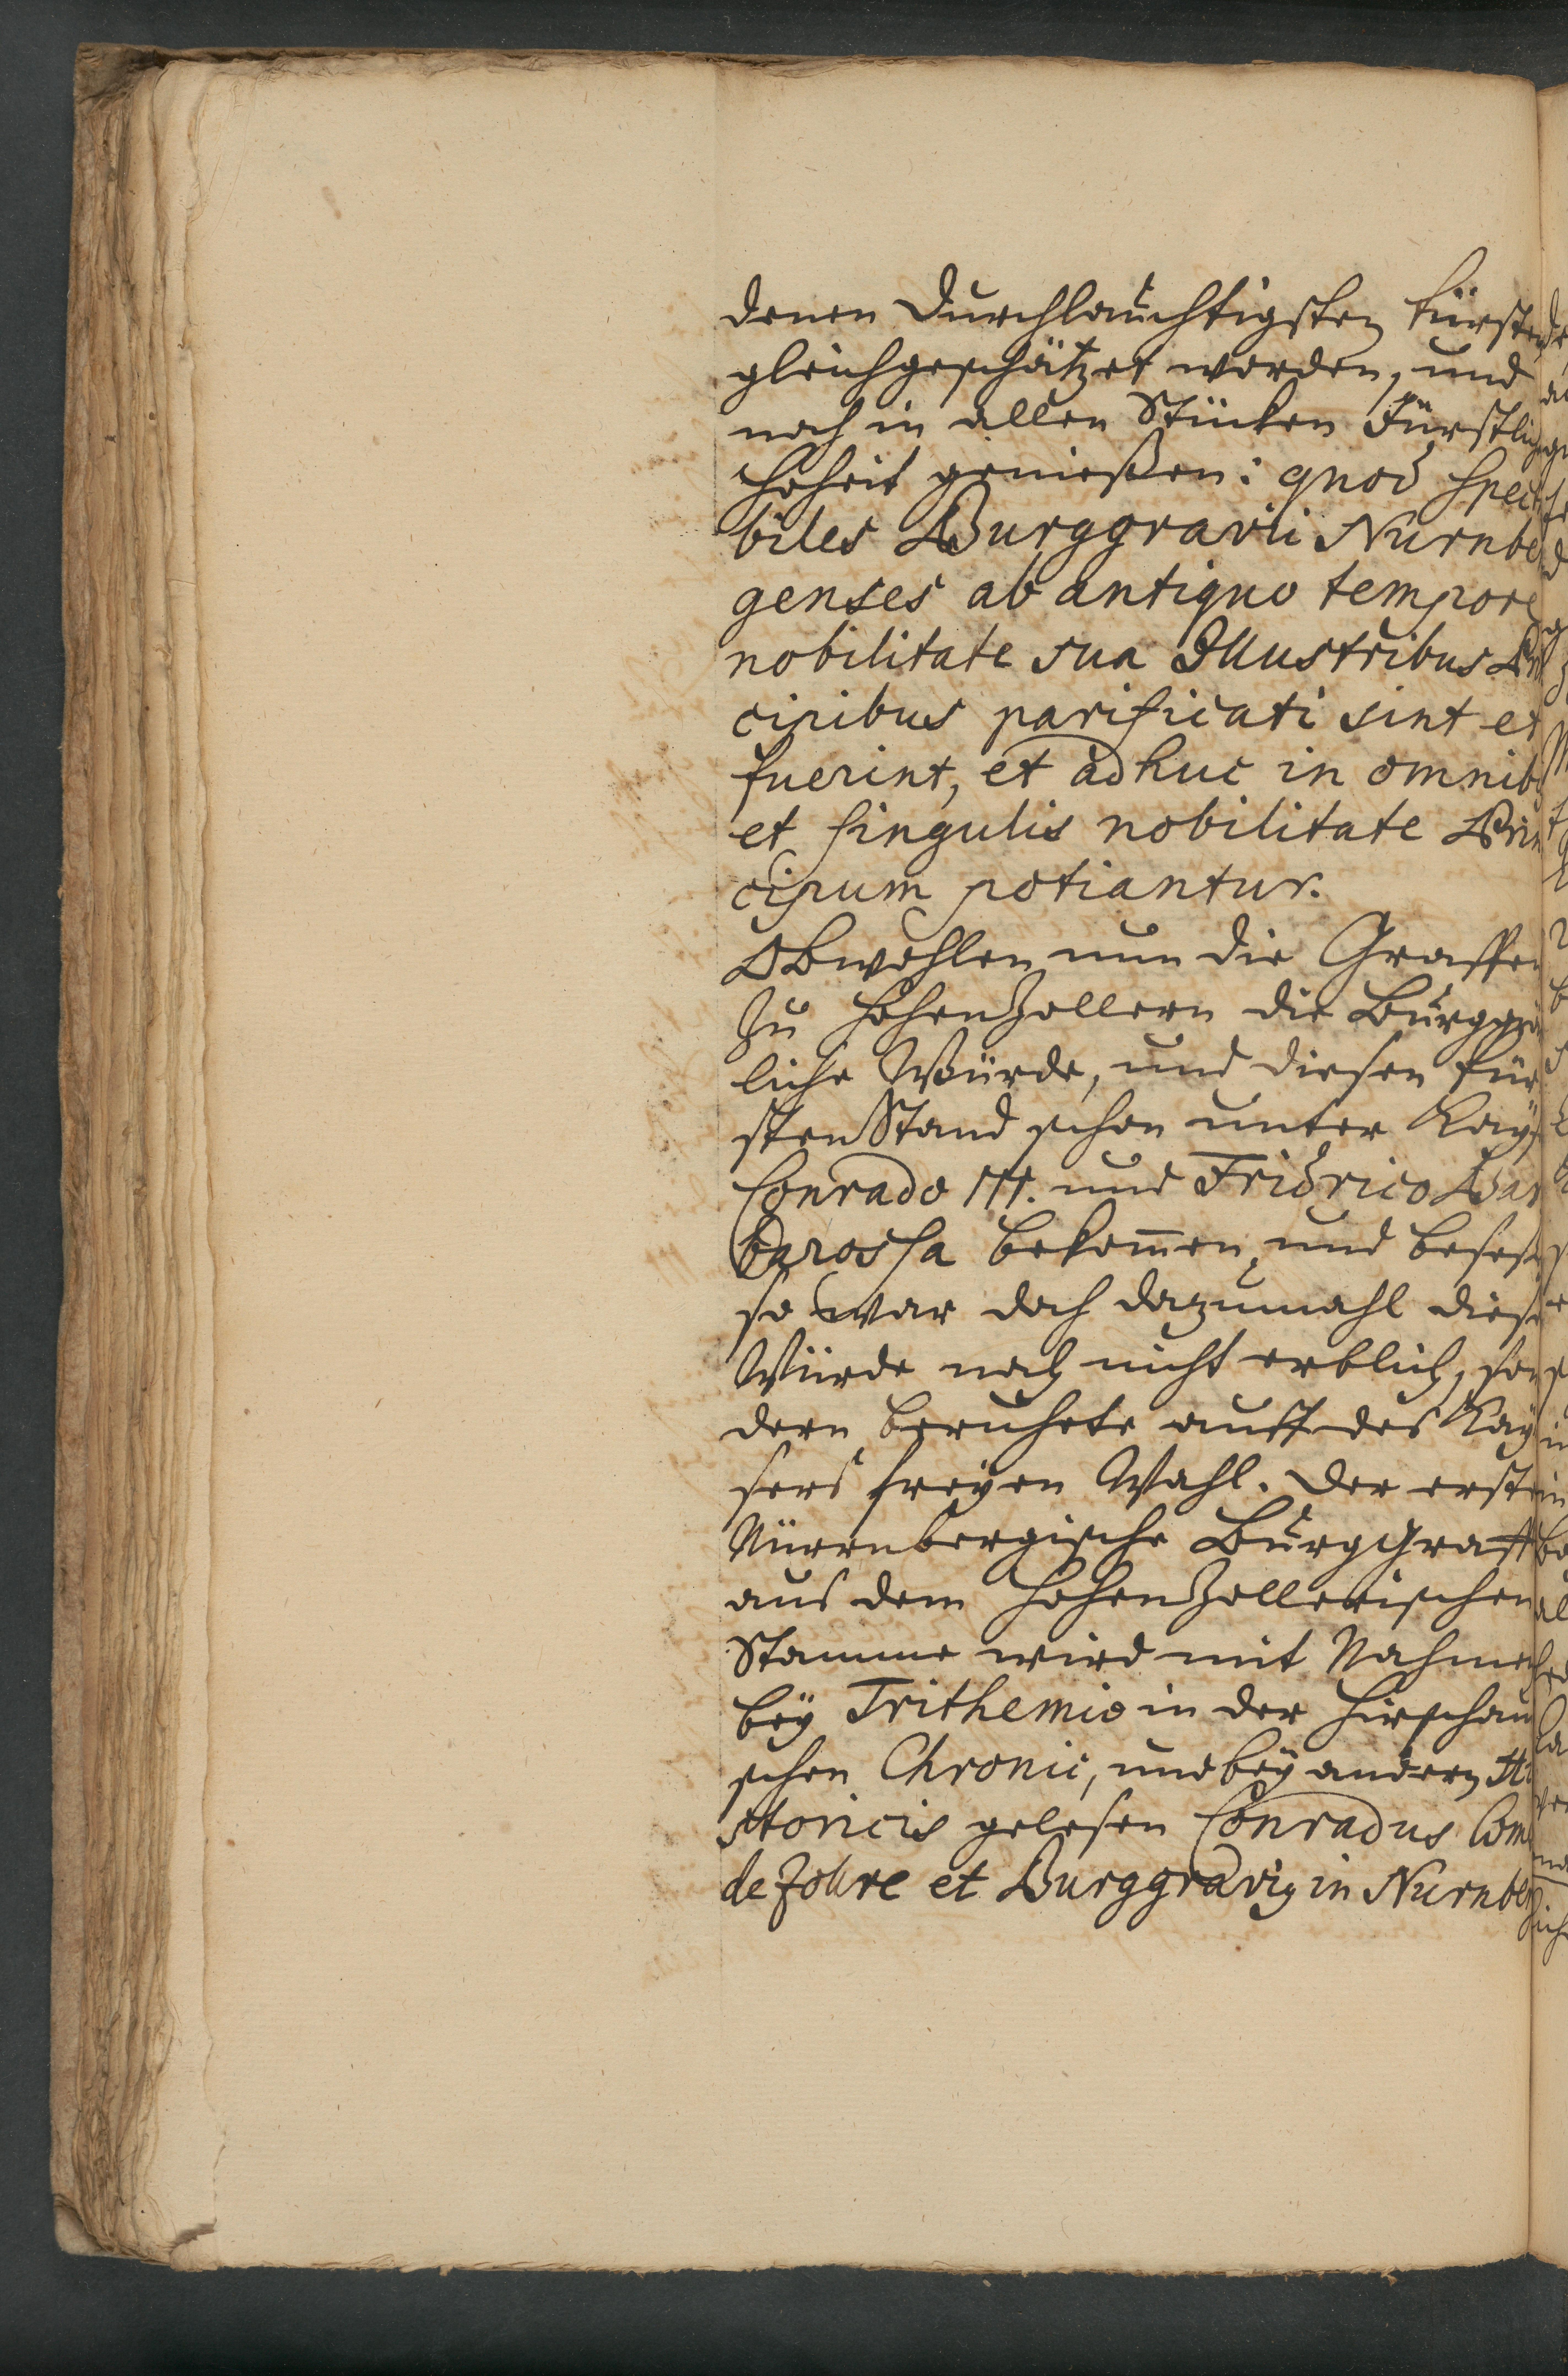 denen Durchlauchtigsten Fürsten
gleichgeschätzet worden, und
noch in allen Stücken Fürstliche
Hoheit genießen: quod Specta
biles Burggravii Nurnber
genses ab antiquo tempore
nobilitate sua Illustribus Prin
cipibus parificati sint et
fuerint, et adhuc in omnibus
et singulis nobilitate Prin
cipum potiantur.
Obwohlen nun die Graffen
zu Hohenzollern die Burggräf
liche Würde, und diesen Für
sten Stand schon unter Kays
Conrado III. und Fridrico Bar
barossa bekom̄en, und beseßen
so war doch dazumahl diese
Würde noch nicht erblich, son
dern beruhete auff des Kay
sers freyen Wahl. Der erste
Nürnbergische Burggraff
aus dem Hohenzollerischen
Stamme wird mit Nahmen
bey Trithemio in der Hirschau
schen Chronic, und bey andern Hi
storicis gelesen Conradus Comes
de Zolre et Burggravig in Nurnber